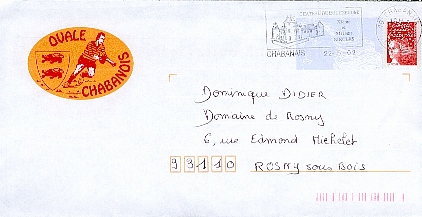 OVALE
CHABANOIS
CHABANAIS
Dominique DIDIER
Domaine de Rosny
6, rue Edmond Michelet
93110
ROSNY sous BOIS